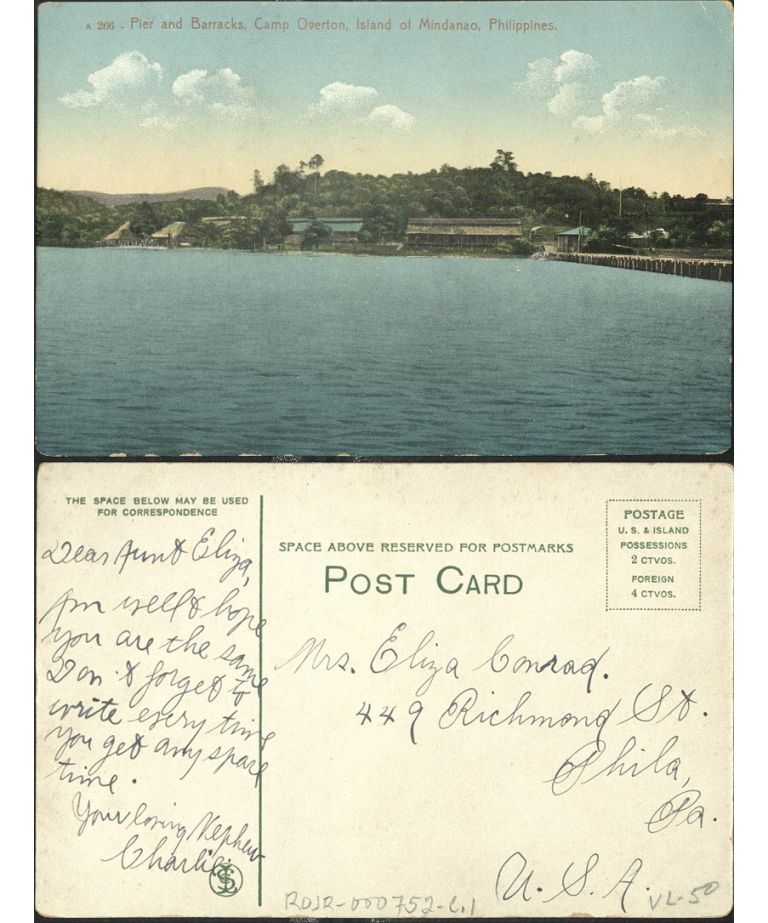 A 266 - Pier and Barracks, Camp Overton, Island of Mindanao, Philippines.
THE SPACE BELOW MAY BE USED
FOR CORRESPONDENCE
Dear Aunt Eliza,
Am well & hope
you are the same
Don't forget to
write every time
you get any spare
time.
Your loving Nephew
Charlie.
SPACE ABOVE RESERVED FOR POSTMARKS
POST CARD
POSTAGE
U. S. & ISLAND
POSSESSIONS
2 CTVOS.
FOREIGN
4 CTVOS.
Mrs. Eliza Conrad.
449 Richmond St.
Phila,
Pa.
U. S. A.
RDJR-000752-C.1
VL-50